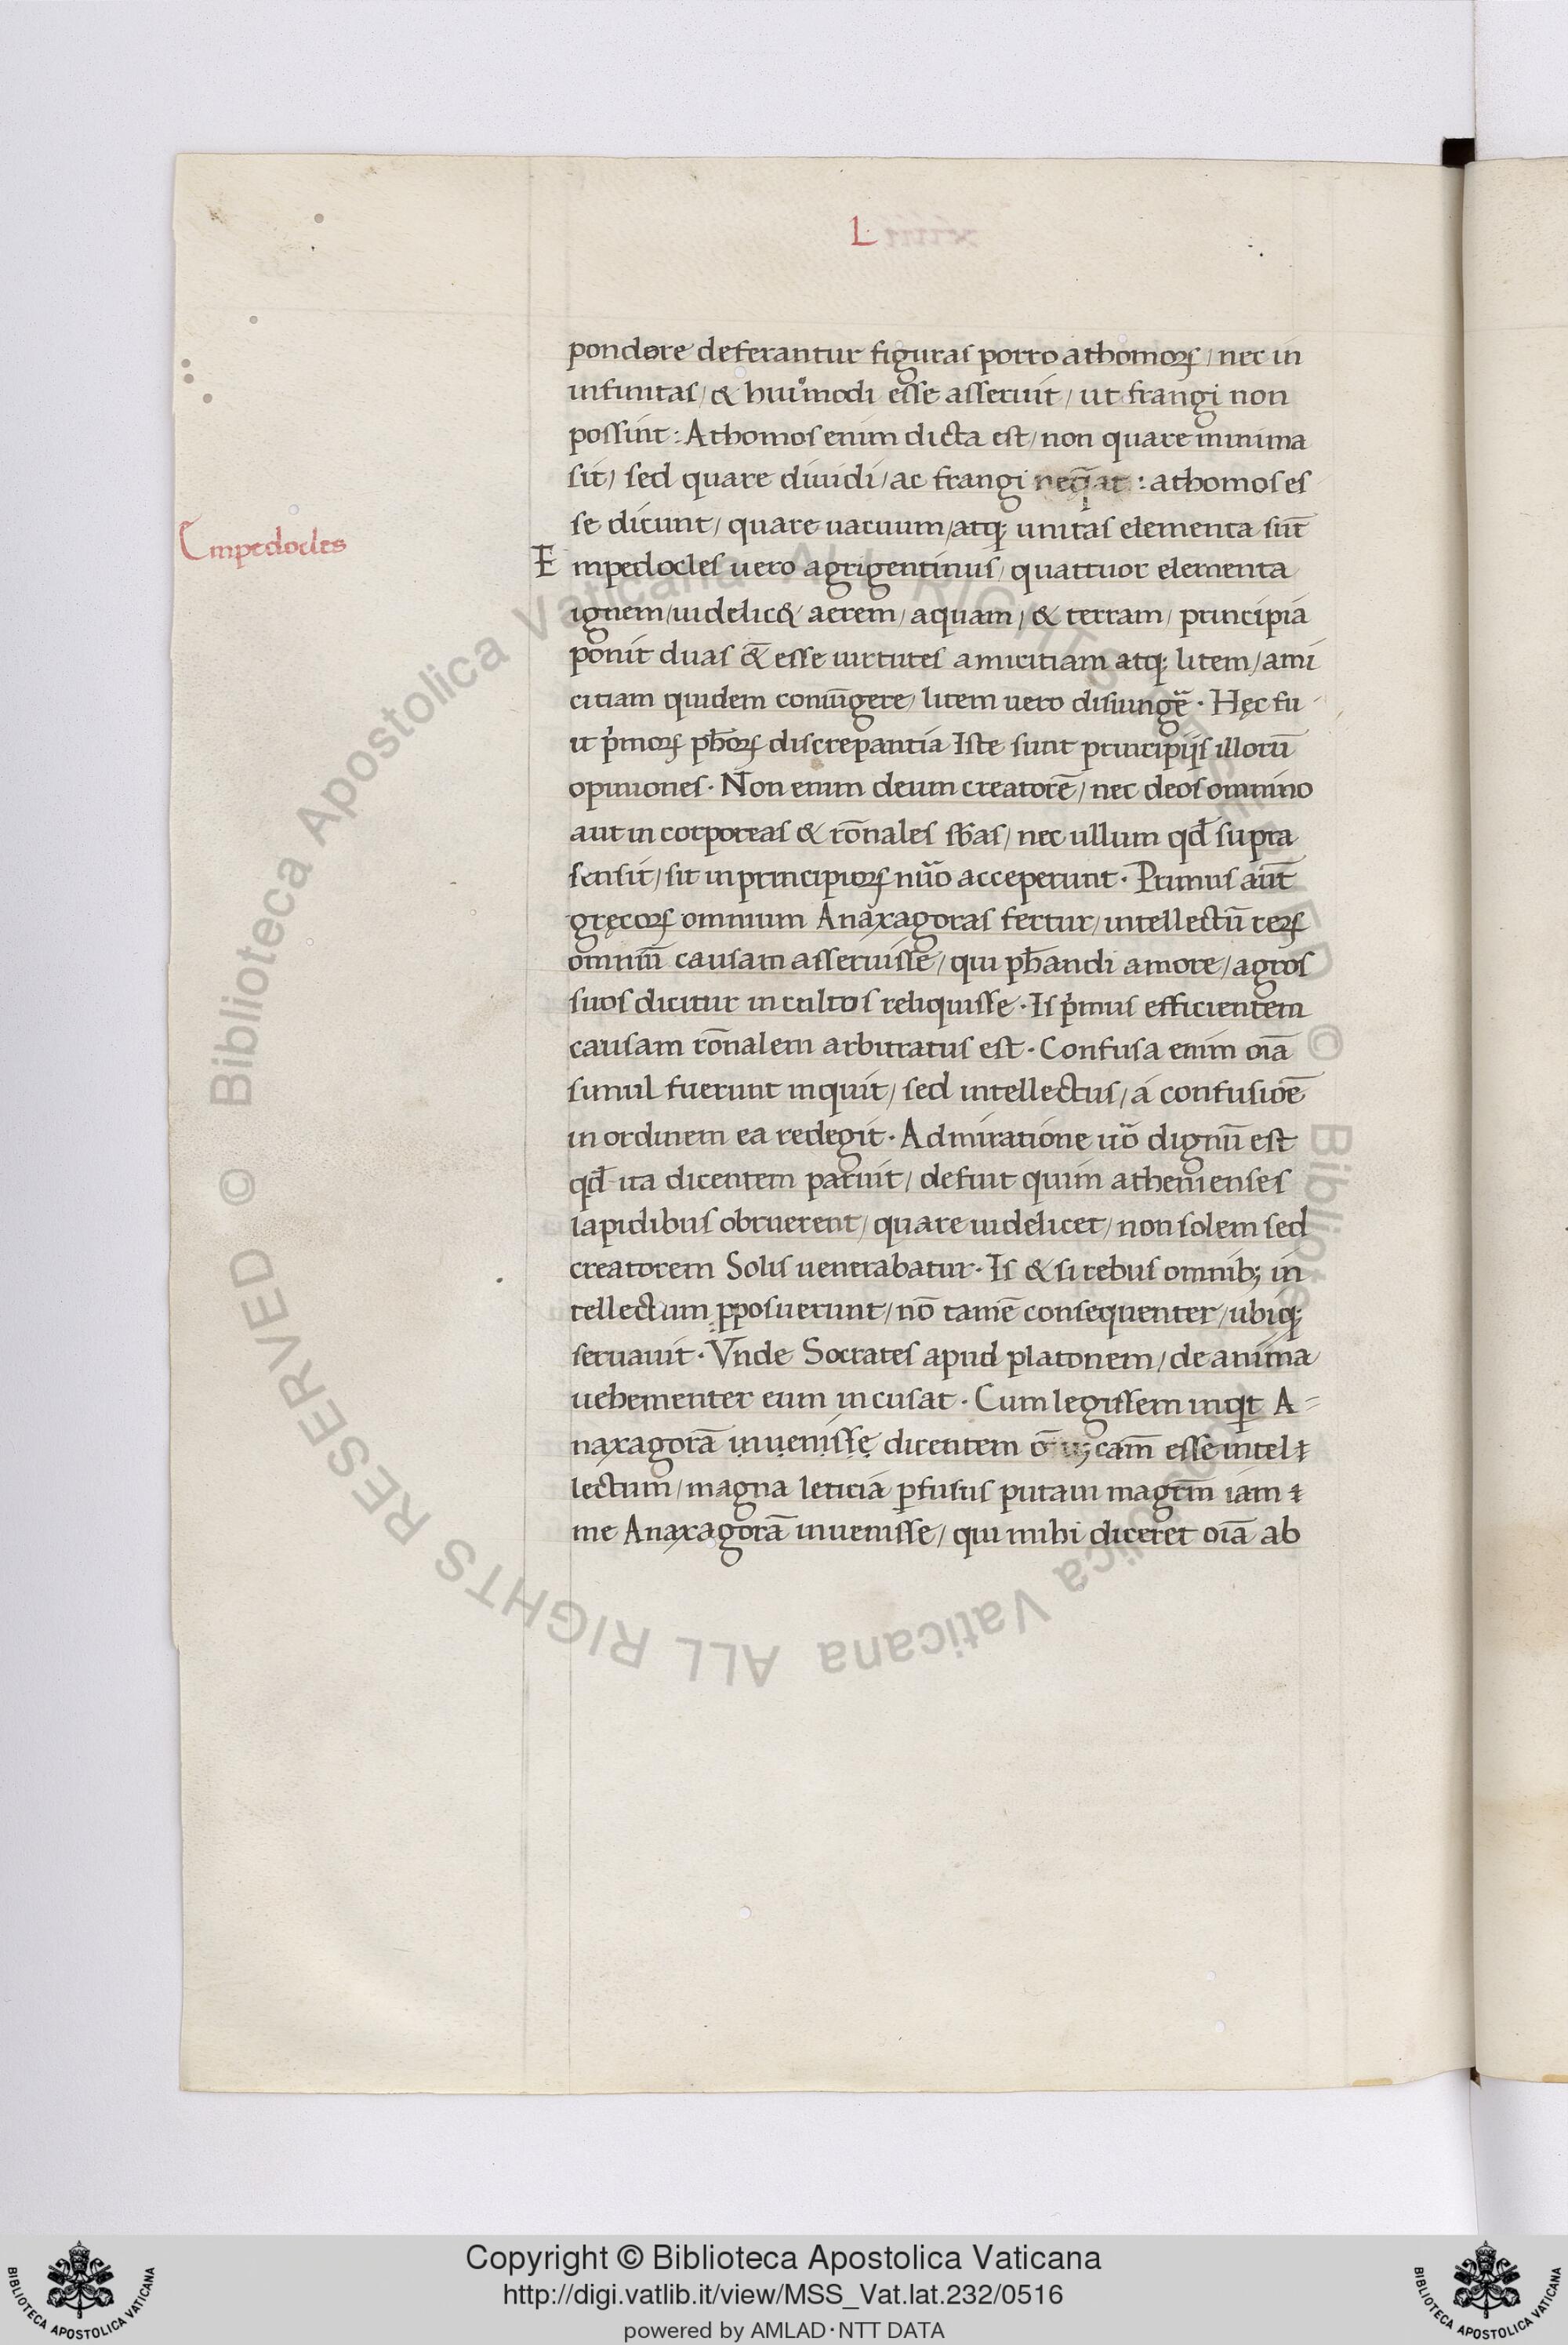 L
pondere deferantur figuras porro athomoꝝ / nec in
infinitas / & huiꝰmodi esse asseruit / ut frangi non
possint : Athomos enim dicta est / non quare minima
sit / sed quare diuidi / ac frangi neq̃at : athomos es
se dicunt / quare uacuum / atq; unitas elementa sūt
Empedocles
Empedocles uero agrigentinus / quattuor elementa
ignem / uidelic& aerem / aquam / & terram / principia
ponit duas &̄ esse uirtutes amicitiam atq; litem / ami
citiam quidem coniūgere / litem uero disiungẽ · Hęc fu
it pͥmoꝝ ph̄oꝝ discrepantia Iste sunt principijs illorū
opiniones · Non enim deum creatorē / nec deos omnino
aut in corporeas & rōnales sb̄as / nec ullum qđ supra
sensit / sit in principioꝝ nũo acceperunt · Primus aūt
gręcoꝝ omnium Anaxagoras fertur / intellectū reꝝ
omniū causam asseruisse / qui ph̄andi amore / agros
suos dicitur in cultos reliquisse · Is pͥmus efficientem
causam rōnalem arbitratus est · Confusa enim oīa
simul fuerunt inquit / sed intellectus / a confusiōe
in ordinem ea redegit · Admiratione ũo dignū est
qđ ita dicentem paruit / defuit quim athenienses
lapidibus obruerent / quare uidelicet / non solem sed
creatorem Solis uenerabatur · Is & si rebus omnib; in
tellectum p̱posuerunt / nō tamē consequenter / ubiq;
seruauit · Vnde Socrates apud platonem / de anima
uehementer eum incusat · Cum legissem inqͥt A=
naxagorā inuenisse dicentem cam̄ esse intel
lectum / magna leticia ꝑfusus putaui magr̄m iam
me Anaxagorā inuenisse / qui mihi diceret oīa ab
Copyright © Biblioteca Apostolica Vaticana
http://digi.vatlib.it/view/MSS_Vat.lat.232/0516
powered by AMLAD·NTT DATA